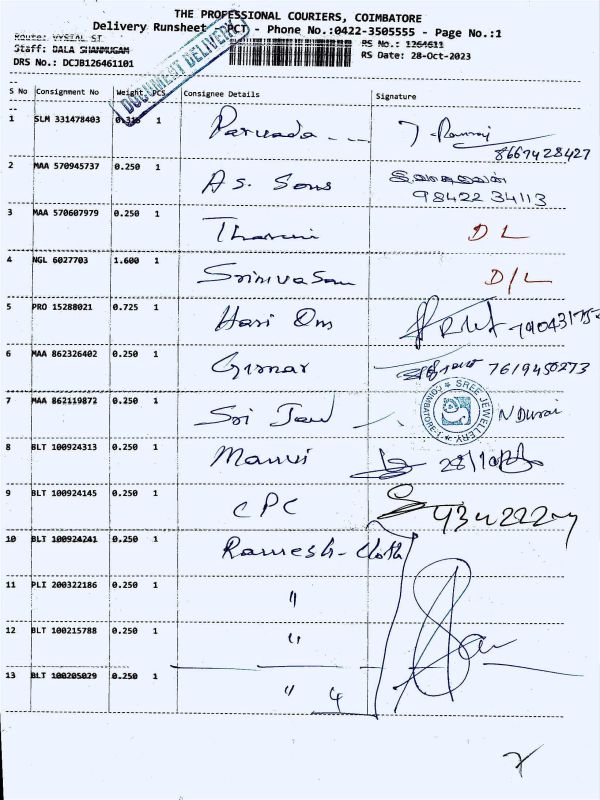 THE PROFESSIONAL COURIERS, COIMBATORE
Delivery Runsheet - PCT - Phone No.:0422-3505555 - Page No.:1
Route: VYSIAL ST
RS No.: 1264611
Staff: BALA SHANMUGAM
RS Date: 28-Oct-2023
DRS No.: DCJB126461101
DOCUMENT DELIVERY
S No Consignment No Weight PCS Consignee Details Signature
1 SLM 331478403 0.315 1
8667428427
2 MAA 570945737 0.250 1 A.S. Sons
98422 34113
3 MAA 570607979 0.250 1 Tharuni D L
4 NGL 6027703 1.600 1 Srinivasan D/L
5 PRO 15288021 0.725 1 Hari Om
6 MAA 862326402 0.250 1 Girnar 7619450273
7 MAA 862119872 0.250 1 Sri Jew N Durai
SREE JEWELLERY COIMBATORE-1
8 BLT 100924313 0.250 1
9 BLT 100924145 0.250 1 CPC
10 BLT 100924241 0.250 1 Ramesh - Cloth
11 PLI 200322186 0.250 1 "
12 BLT 100215788 0.250 1 "
13 BLT 100205029 0.250 1 " 4
7